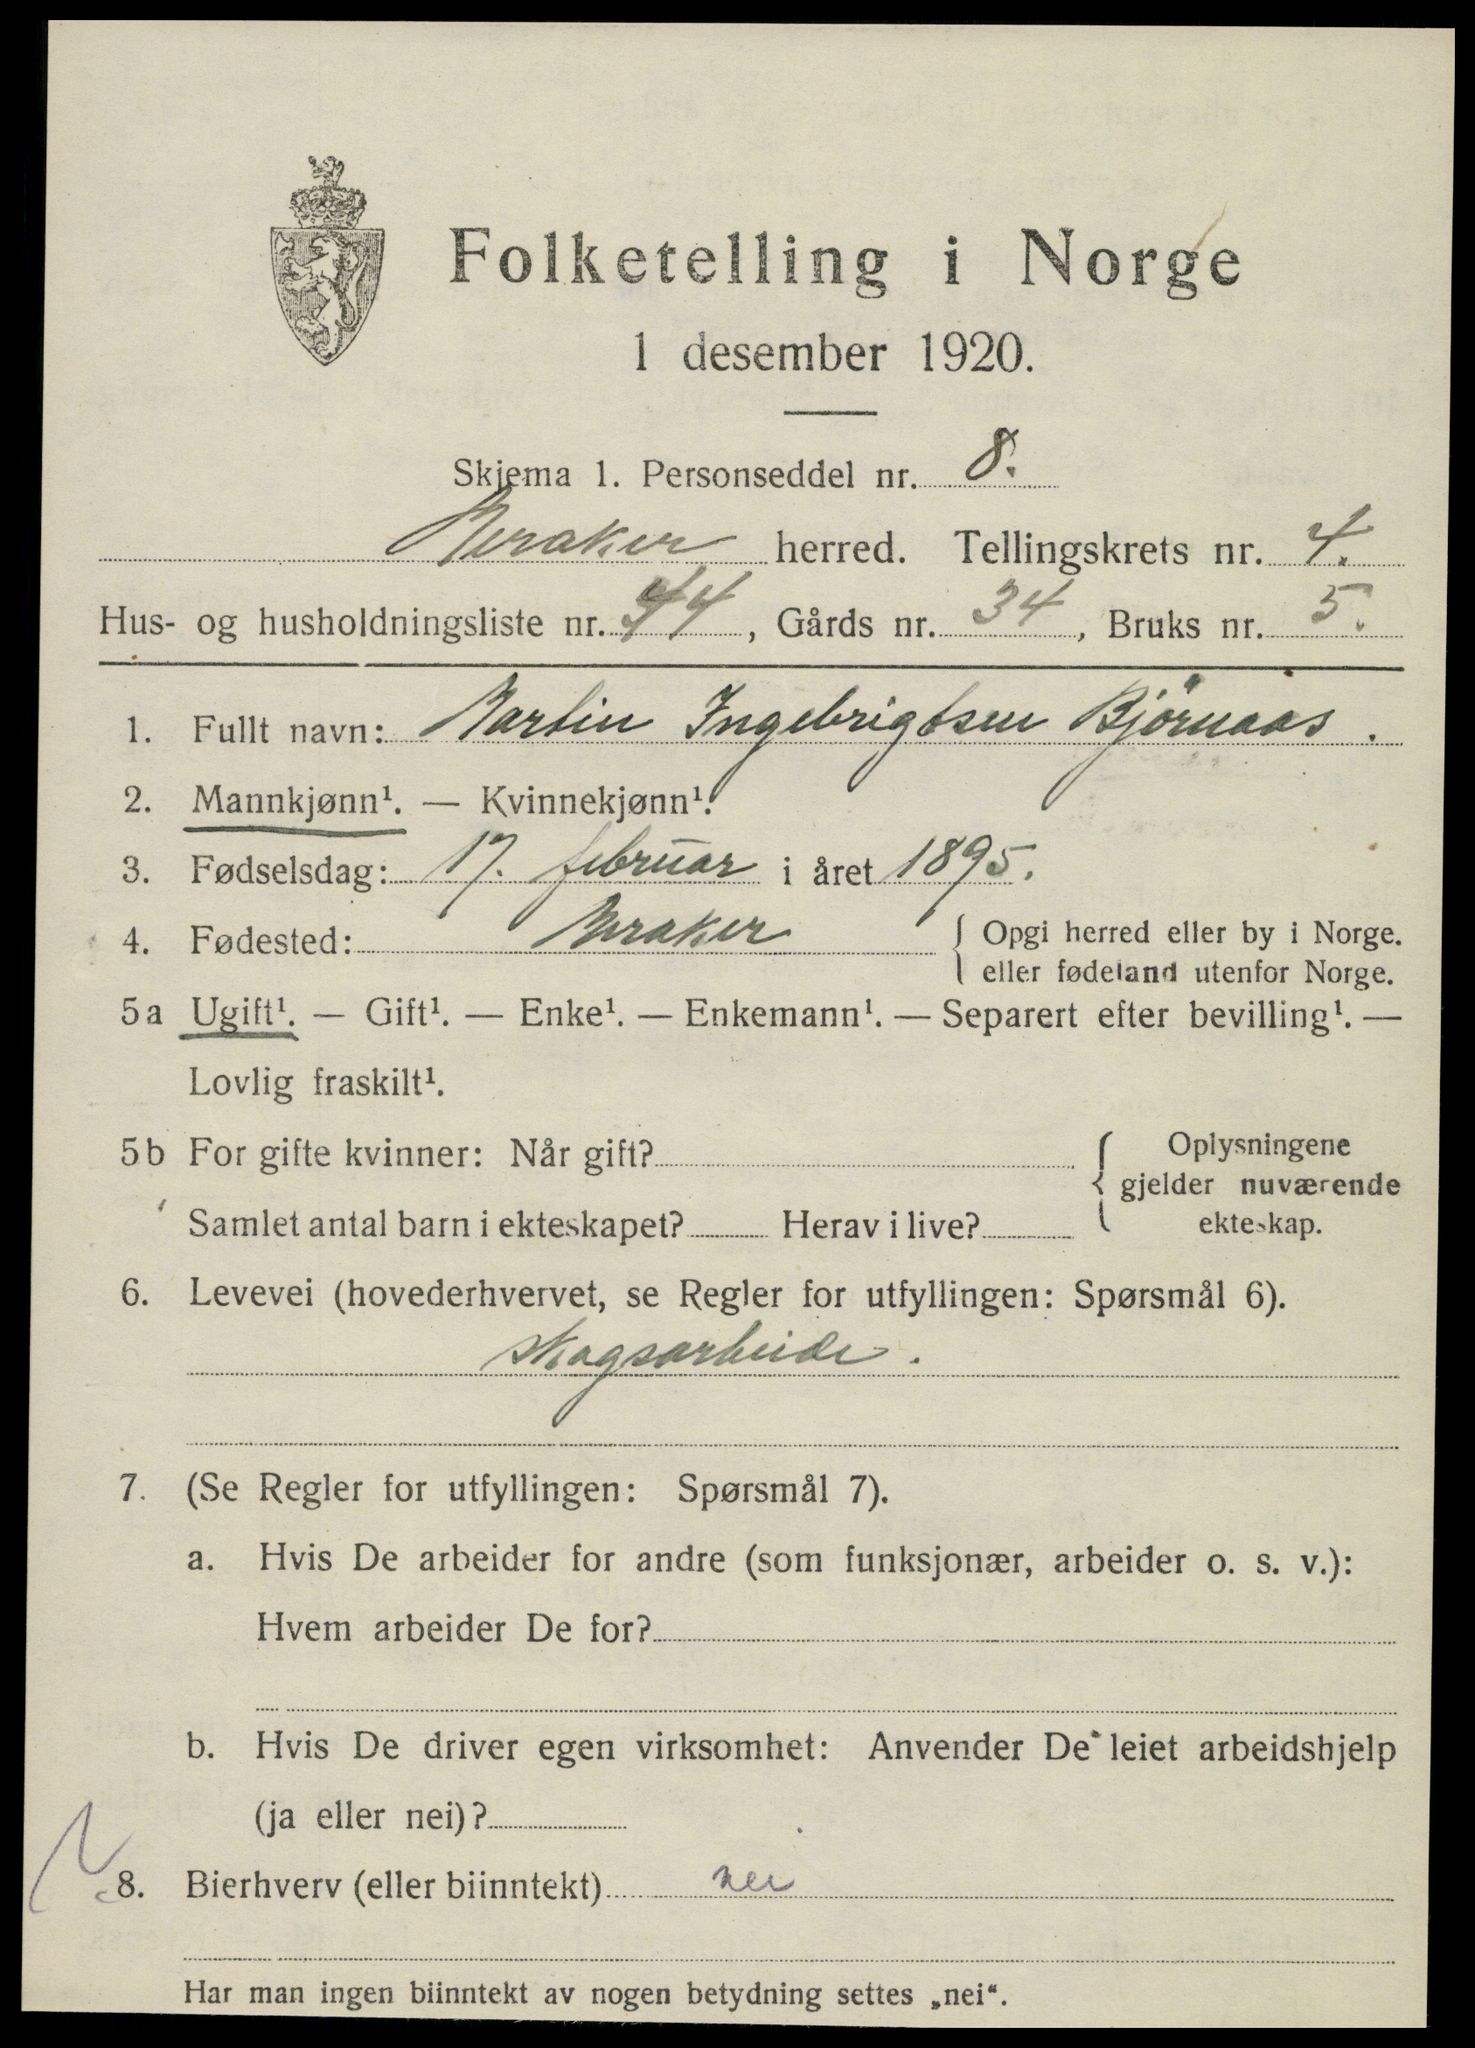 Folketelling i Norge
1 desember 1920.
Skjema 1. Personseddel nr. 8.
Meraker herred. Tellingskrets nr. 4.
Hus- og husholdningsliste nr. 44, Gårds nr. 34, Bruks nr. 5.
1. Fullt navn: Martin Ingebrigtsen Björnaas.
2. Mannkjønn¹. — Kvinnekjønn¹.
3. Fødselsdag: 17. februar i året 1895.
4. Fødested: Meraker { Opgi herred eller by i Norge.
eller fødeland utenfor Norge.
5a Ugift¹. — Gift¹. — Enke¹. — Enkemann¹. — Separert efter bevilling¹. —
Lovlig fraskilt¹.
5b For gifte kvinner: Når gift? { Oplysningene
gjelder nuværende
Samlet antal barn i ekteskapet? Herav i live? ekteskap.
6. Levevei (hovederhvervet, se Regler for utfyllingen: Spørsmål 6).
skogsarbeide.
7. (Se Regler for utfyllingen: Spørsmål 7).
a. Hvis De arbeider for andre (som funksjonær, arbeider o. s. v.):
Hvem arbeider De for?
b. Hvis De driver egen virksomhet: Anvender De leiet arbeidshjelp
(ja eller nei)?
8. Bierhverv (eller biinntekt) nei
Har man ingen biinntekt av nogen betydning settes „nei“.